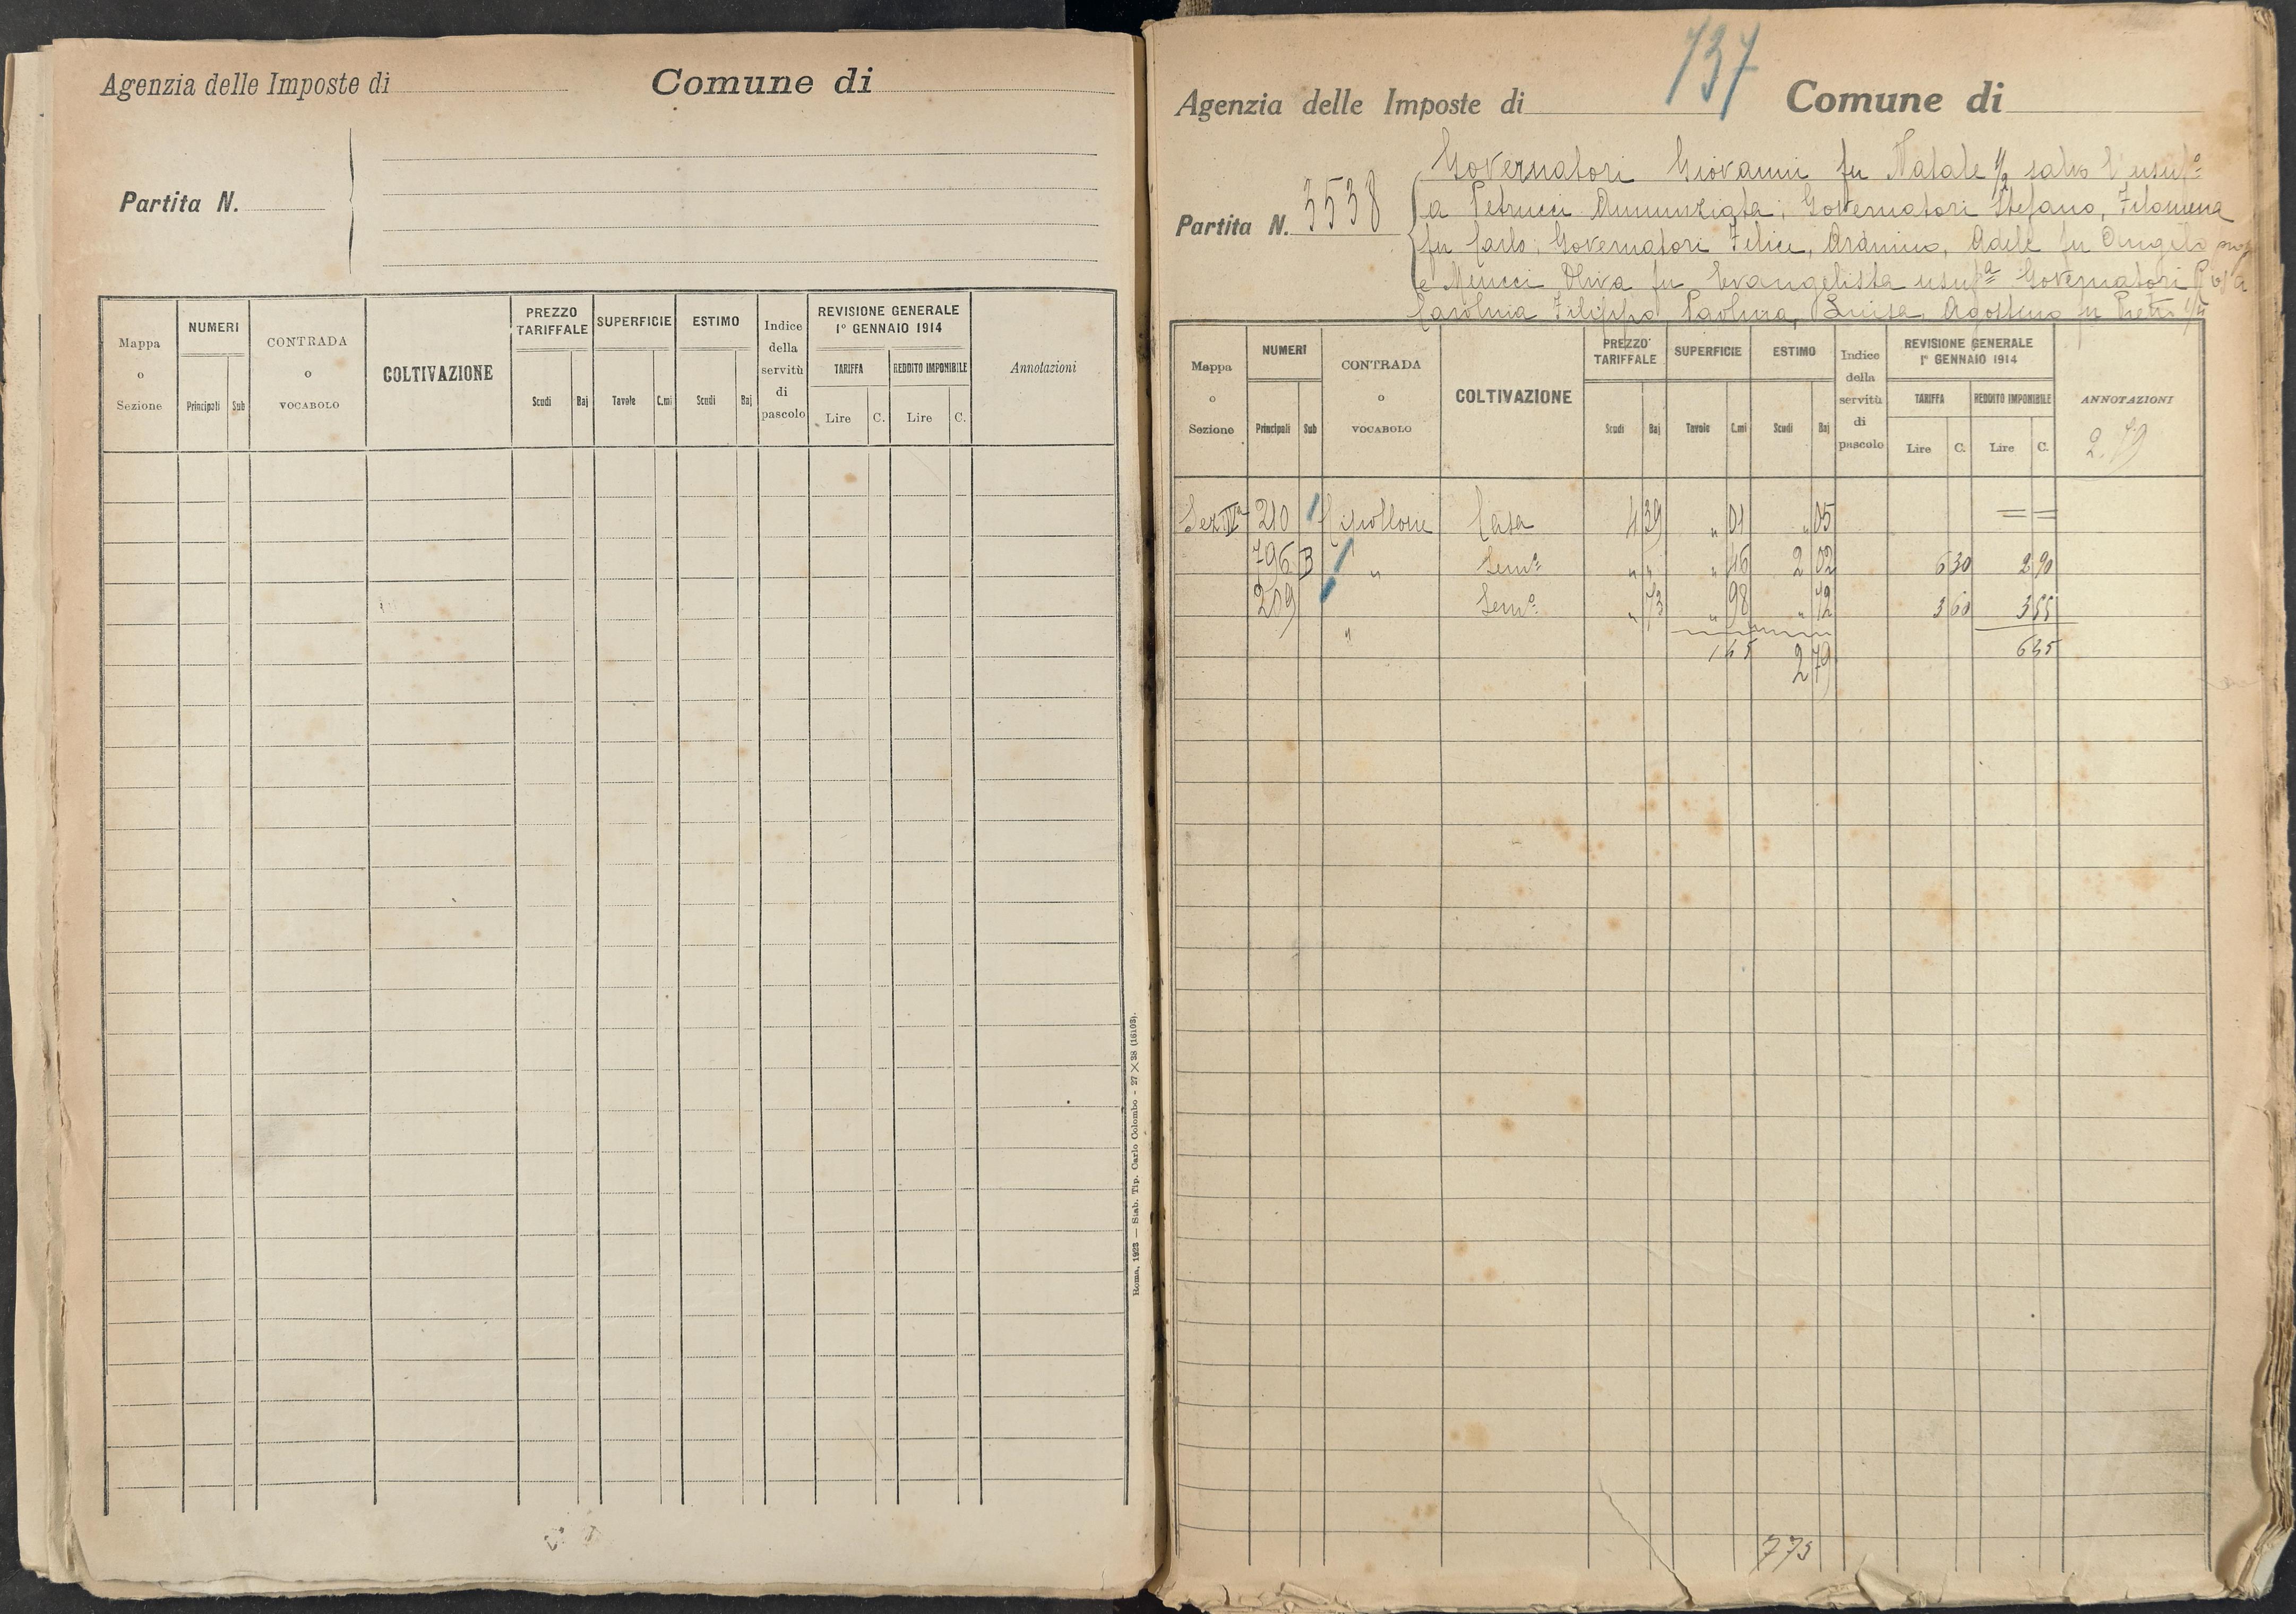 Agenzia delle Imposte di
Comune di
Partita N.
Mappa o Sezione
NUMERI
Principali
Sub
CONTRADA o VOCABOLO
COLTIVAZIONE
PREZZO TARIFFALE
Scudi
Baj
SUPERFICIE
Tavole
C.mi
ESTIMO
Scudi
Baj
Indice della servitù di pascolo
REVISIONE GENERALE
1º GENNAIO 1914
TARIFFA
Lire
C.
REDDITO IMPONIBILE
Lire
C.
Annotazioni
Roma, 1923 — Stab. Tip. Carlo Colombo - 27 X 38 (16103).
737
Agenzia delle Imposte di
Comune di
Partita N. 3538
Governatori Giovanni fu Natale 1/2 salvo l'usufº
a Petrucci Annunziata; Governatori Stefano, Filomena
fu Carlo; Governatori Felice, Adele fu Angelo
e Meucci Oliva fu Evangelista usufª Governatori Rosa
Carolina Filippo Paolina, Luisa, Agostino fu Pietro
Mappa o Sezione
NUMERI
Principali
Sub
CONTRADA o VOCABOLO
COLTIVAZIONE
PREZZO TARIFFALE
Scudi
Baj
SUPERFICIE
Tavole
C.mi
ESTIMO
Scudi
Baj
Indice della servitù di pascolo
REVISIONE GENERALE
1º GENNAIO 1914
TARIFFA
Lire
C.
REDDITO IMPONIBILE
Lire
C.
ANNOTAZIONI
2.79
Sez IVª 210 Casa 4 39 " 01 " 05 = =
796 B " Semº " " " 46 2 02 6 30 2 90
209 " Semº " 73 " 98 " 72 3 60 3 55
1 45 2 79 6 45
775